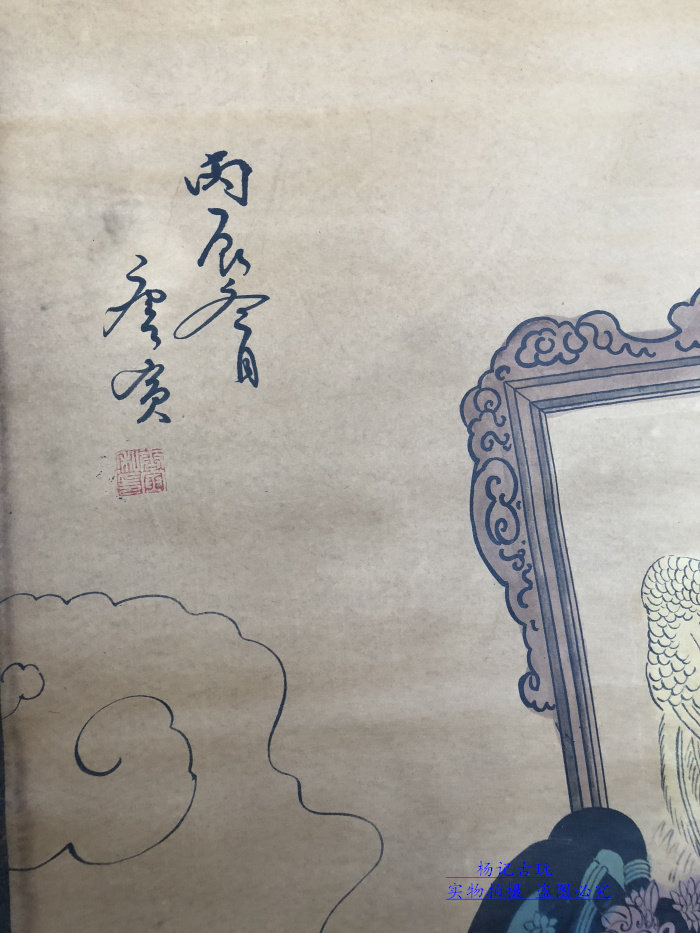 丙辰冬月
唐寅
杨记古玩
实物拍摄 盗图必究